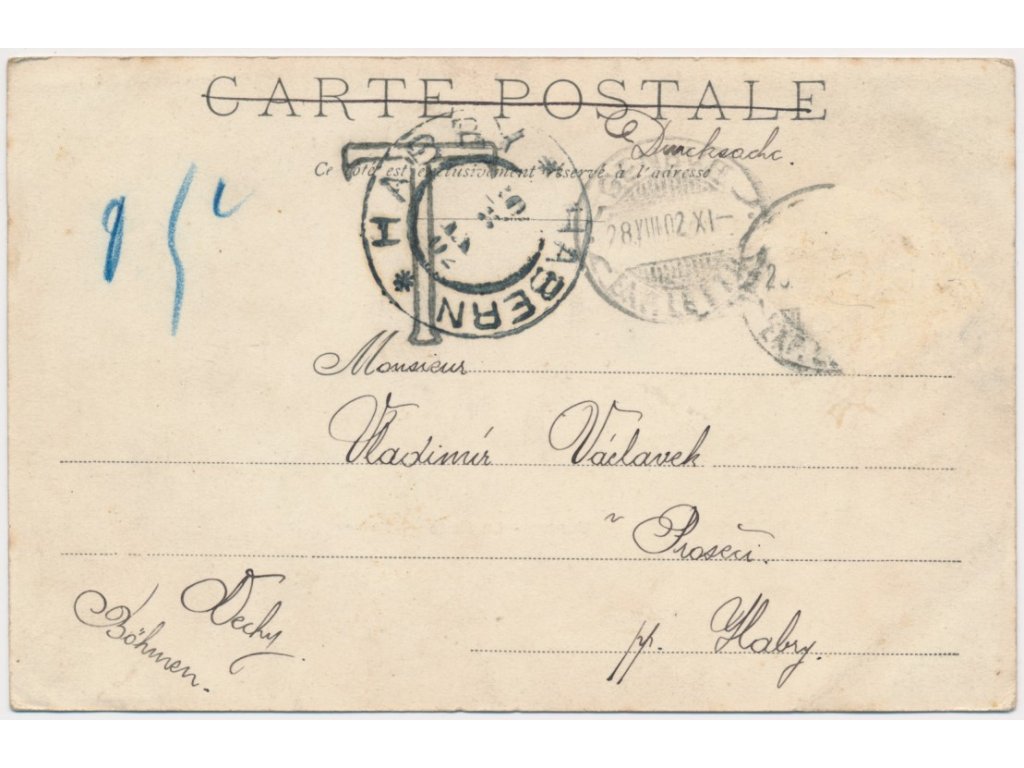 CARTE POSTALE
Drucksache.
Ce côté est exclusivement réservé à l'adresse
T
HABRY * HABERN *
28.VIII.02.XI-
Monsieur
Vladimír Václavek
v Proseči.
Čechy
Böhmen.
pp. Habry.